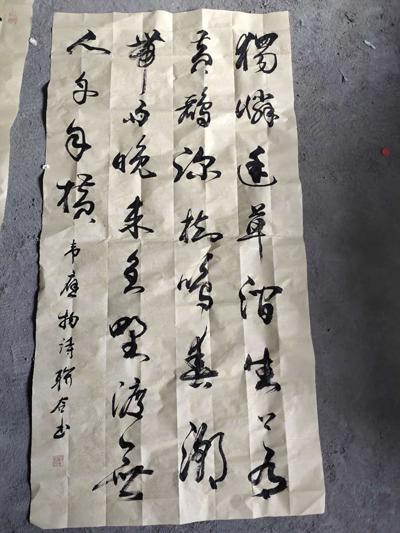 獨憐幽草澗生上有
黄鸝深樹鳴春潮
帶雨晚来急野渡無
人舟自横
韦應物诗 合书